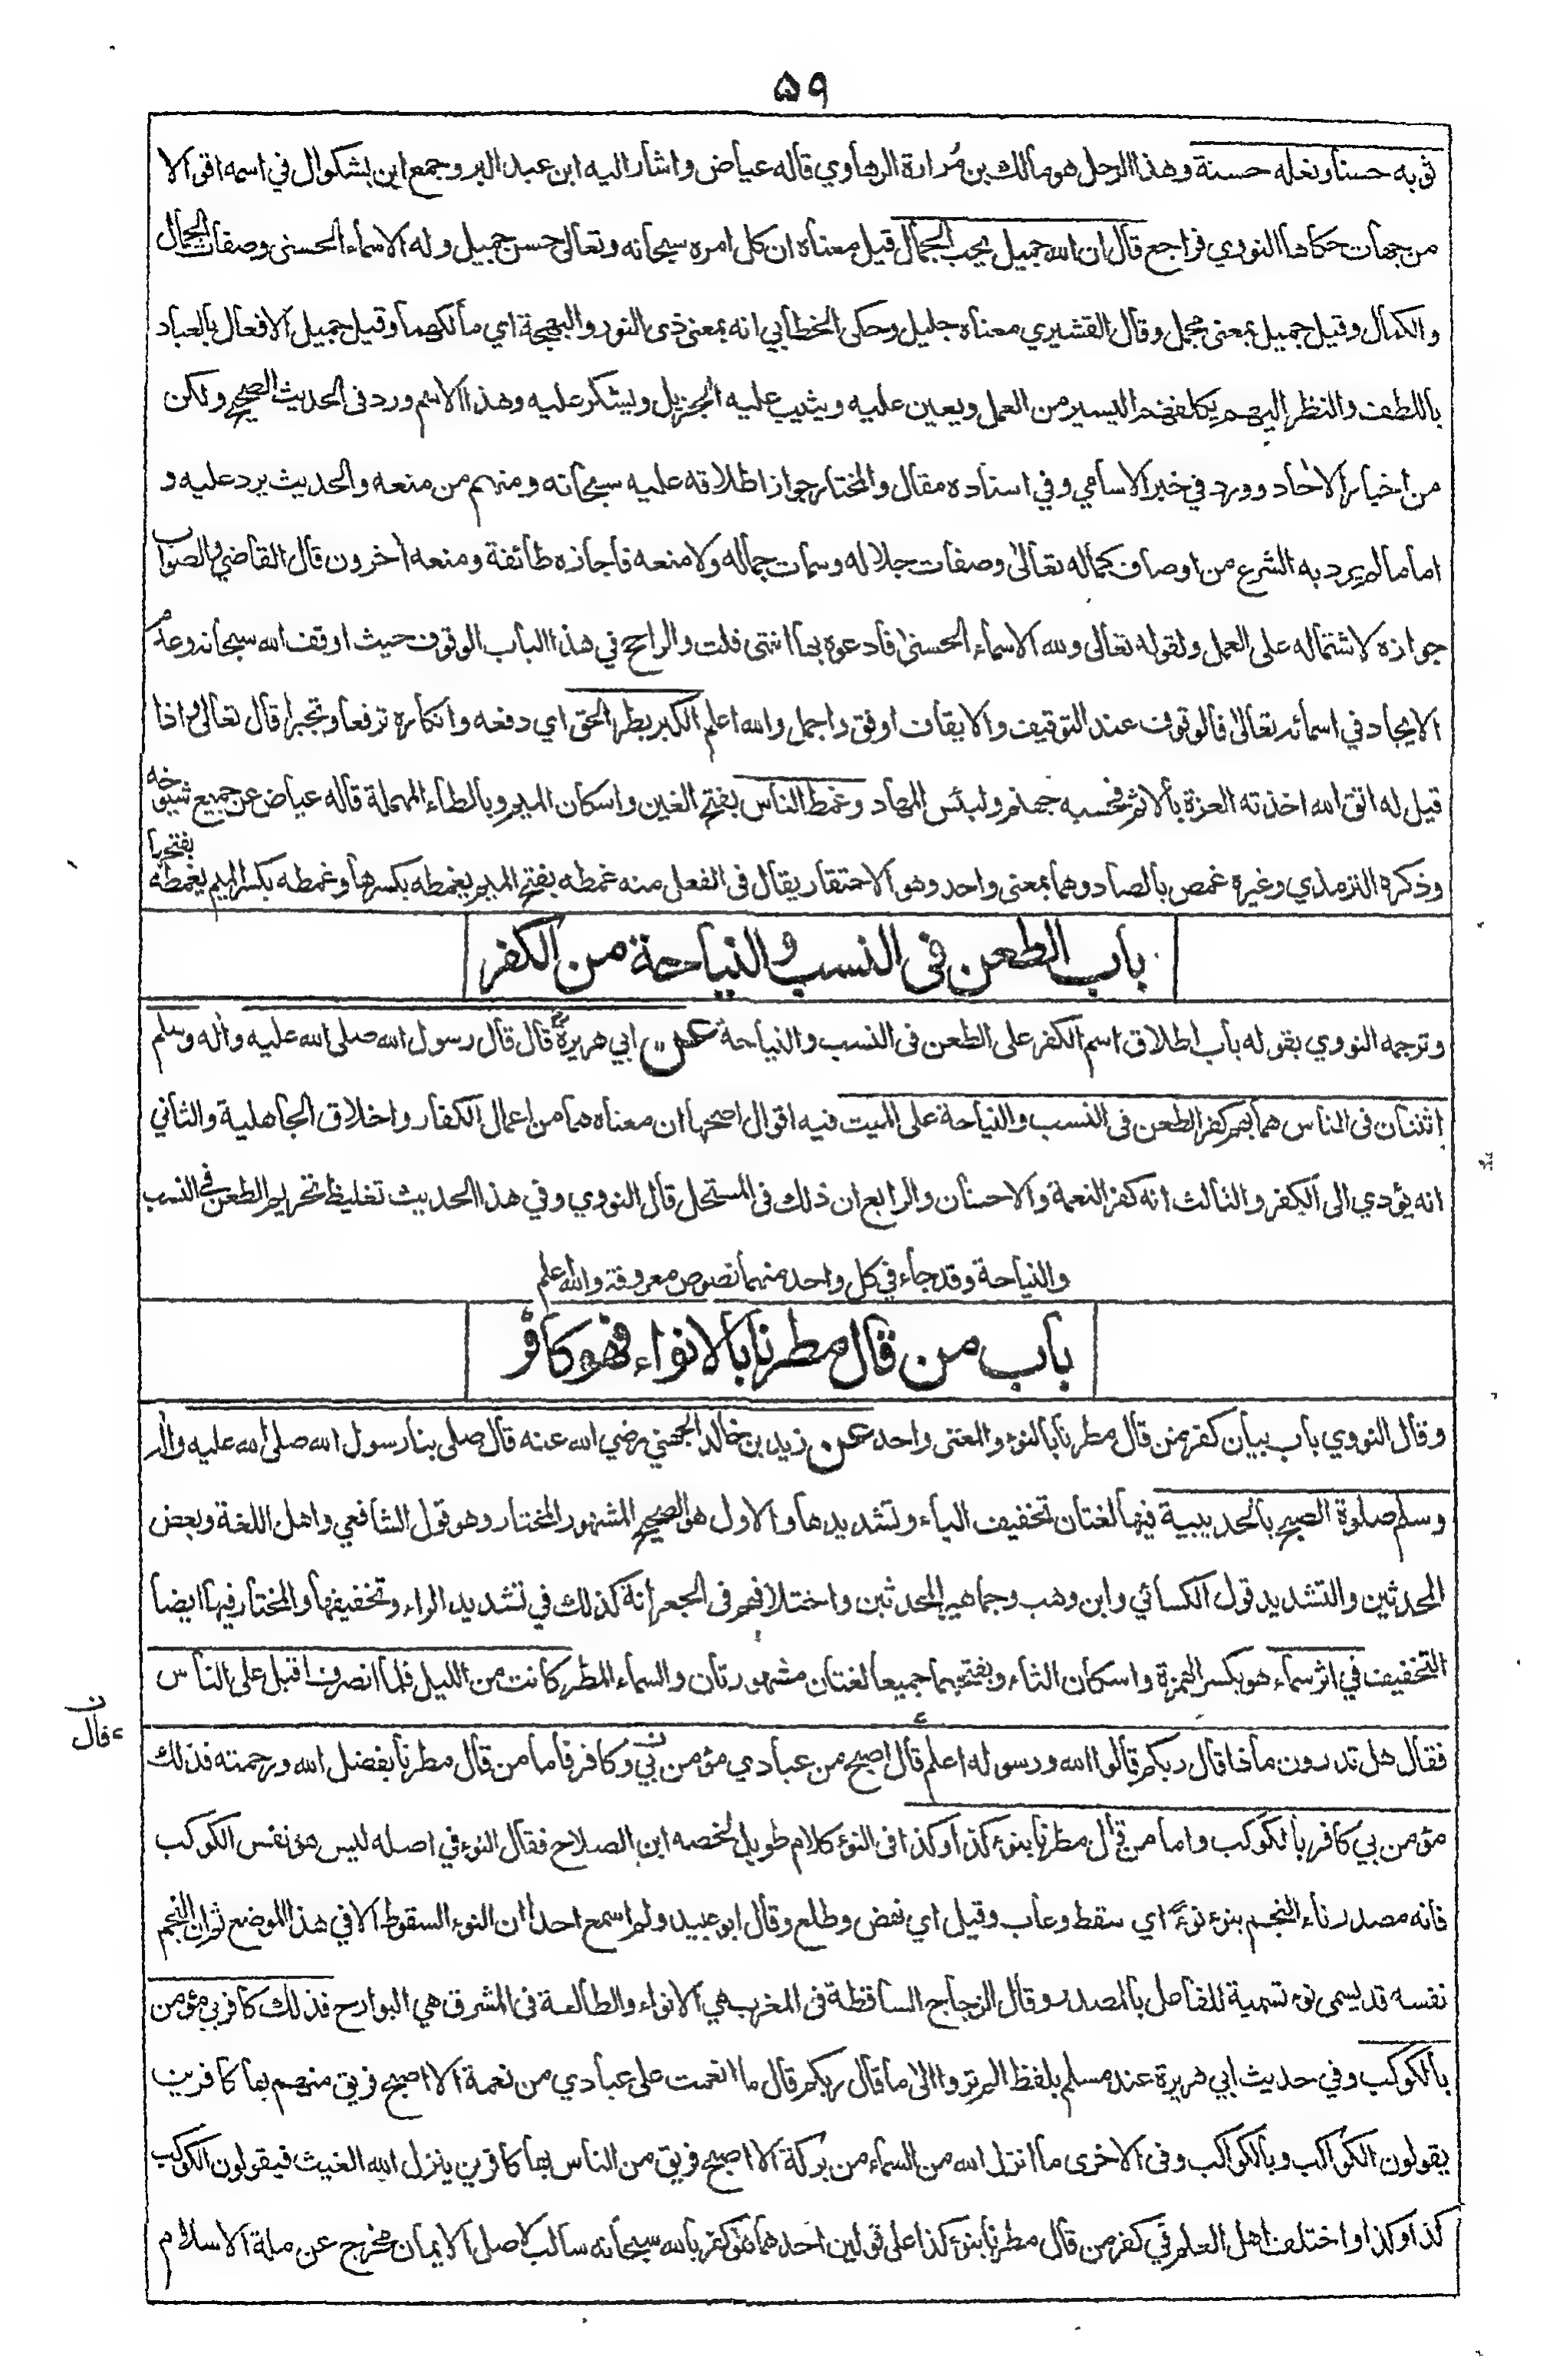 ۵۹
ثوبه حسنا ونعله حسنة وهذا الرجل هو مالك بن مُرارة الرهاوي قاله عياض واشار اليه ابن عبد البر وجمع ابن بشكوال في اسمه اقوالا
من جهات حكاها النووي فراجع قال ان الله جميل يحب الجمال قيل معناه ان كل امره سبحانه وتعالى حسن جميل وله الاسماء الحسنى وصفات الجمال
والكمال وقيل جميل بمعنى مجمل وقال القشيري معناه جليل وحكى الخطابي انه بمعنى ذى النور والبهجة اي مالكهما وقيل جميل الافعال بالعباد
باللطف والنظر اليهم يكلفهم اليسير من العمل ويعين عليه ويثيب عليه الجزيل ويشكر عليه وهذا الاسم ورد فى الحديث الصحيح ولكن
من اخبار الاحاد وورد في خبر الاسامي وفي اسناده مقال والمختار جواز اطلاقه عليه سبحانه ومنهم من منعه والحديث يرد عليه و
اما ما لم يرد به الشرع من اوصاف كماله تعالى وصفات جلاله وسمات جماله ولا منعه فاجازه طائفة ومنعه اخرون قال القاضي والصواب
جوازه لاشتماله على العمل ولقوله تعالى ولله الاسماء الحسنى فادعوه بها انتهى قلت والراجح في هذا الباب الوقوف حيث اوقف الله سبحانه وعدم
الايجاد في اسمائه تعالى فالوقوف عند التوقيف والايقاف اوفق واجمل والله اعلم الكبر بطر الحق اي دفعه وانكاره ترفعا وتجبرا قال تعالى واذا
قيل له اتق الله اخذته العزة بالاثم فحسبه جهنم ولبئس المهاد وغمط الناس بفتح الغين واسكان الميم وبالطاء المهملة قاله عياض عن جميع شيوخه
وذكره الترمذي وغيره غمص بالصاد وهما بمعنى واحد وهو الاحتقار يقال فى الفعل منه غمطه بفتح الميم يغمطه بكسرها وغمطه بكسر الميم يغمطه بفتحها
باب الطعن فى النسب والنياحة من الكفر
وترجمه النووي بقوله باب اطلاق اسم الكفر على الطعن فى النسب والنياحة عن ابي هريرة قال قال رسول الله صلى الله عليه واله وسلم
اثنتان فى الناس هما بهم كفر الطعن فى النسب والنياحة على الميت فيه اقوال اصحها ان معناه هما من اعمال الكفار واخلاق الجاهلية والثاني
انه يؤدي الى الكفر والثالث انه كفر النعمة والاحسان والرابع ان ذلك فى المستحل قال النووي وفي هذا الحديث تغليظ تحريم الطعن فى النسب
والنياحة وقد جاء في كل واحد منهما نصوص معروفة والله اعلم
باب من قال مطرنا بالانواء فهو كافر
وقال النووي باب بيان كفر من قال مطرنا بالنوء والمعنى واحد عن زيد بن خالد الجهني رضي الله عنه قال صلى بنا رسول الله صلى الله عليه واله
وسلم صلوة الصبح بالحديبية فيها لغتان تخفيف الياء وتشديدها والاول هو الصحيح المشهور المختار وهو قول الشافعي واهل اللغة وبعض
المحدثين والتشديد قول الكسائي وابن وهب وجماهير المحدثين واختلافهم فى الجعرانة كذلك في تشديد الراء وتخفيفها والمختار فيها ايضا
التخفيف في اثر سماء هو بكسر الهمزة واسكان الثاء وبفتحهما جميعا لغتان مشهورتان والسماء المطر كانت من الليل فلما انصرف اقبل على الناس
فقال هل تدرون ماذا قال ربكم قالوا الله ورسوله اعلم قال اصبح من عبادي مؤمن بي وكافر فاما من قال مطرنا بفضل الله ورحمته فذلك
قال
مؤمن بي كافر بالكوكب واما من قال مطرنا بنوء كذا وكذا فى النوء كلام طويل لخصه ابن الصلاح فقال النوء في اصله ليس هو نفس الكوكب
فانه مصدر ناء النجم ينوء نوءً اي سقط وغاب وقيل اي نهض وطلع وقال ابو عبيد ولم اسمع احدا ان النوء السقوط الا في هذا الموضع ثم ان النجم
نفسه قد يسمى نوء تسمية للفاعل بالمصدر وقال الزجاج الساقطة فى المغرب هي الانواء والطالعة فى المشرق هي البوارح فذلك كافر بي مؤمن
بالكوكب وفي حديث ابي هريرة عند مسلم بلفظ الم تروا الى ما قال ربكم قال ما انعمت على عبادي من نعمة الا اصبح فريق منهم بها كافرين
يقولون الكواكب وبالكواكب وفى الاخرى ما انزل الله من السماء من بركة الا اصبح فريق من الناس بها كافرين ينزل الله الغيث فيقولون الكوكب
كذا وكذا واختلف اهل العلم في كفر من قال مطرنا بنوء كذا على قولين احدهما هو كفر بالله سبحانه سالب لاصل الايمان مخرج عن ملة الاسلام